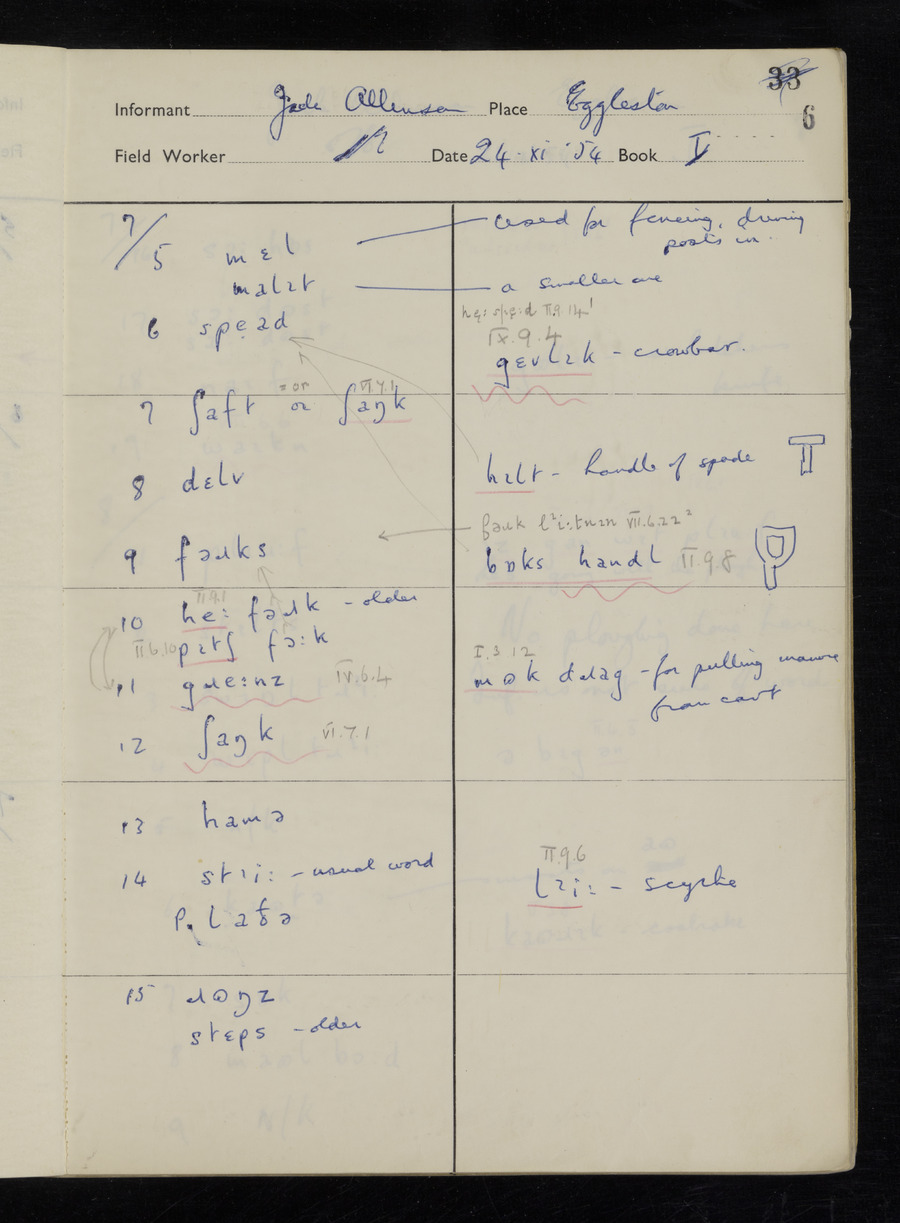 33
6
Informant Jack Allenson Place Eggleston
Field Worker Date 24 · xi · 54 Book V
7/5 mɛl
used for fencing, driving
posts in.
malɪt
a smaller one
6 speəd
he: spe:d II.9.14
IX.9.4
gɛvlɪk - crowbar.
7 ʃaft or ʃaŋk
= or VI.7.1
hɪlt - handle of spade
8 dɛlv
fəɹk VII.6.22
9 fəɹks
bɒks handl II.9.8
II.9.1
10 he: fəɹk - older
II.6.10 pɪtʃ fə:k
11 gɹe:nz IV.6.4
I.3 12
mɵk dɹag - for pulling manure
from cart
12 ʃaŋk VI.7.1
13 hamə
14 stɪi: - usual word
II.9.6
lɪi: - scythe
P. laðə
15 ɹɵŋz
steps - older